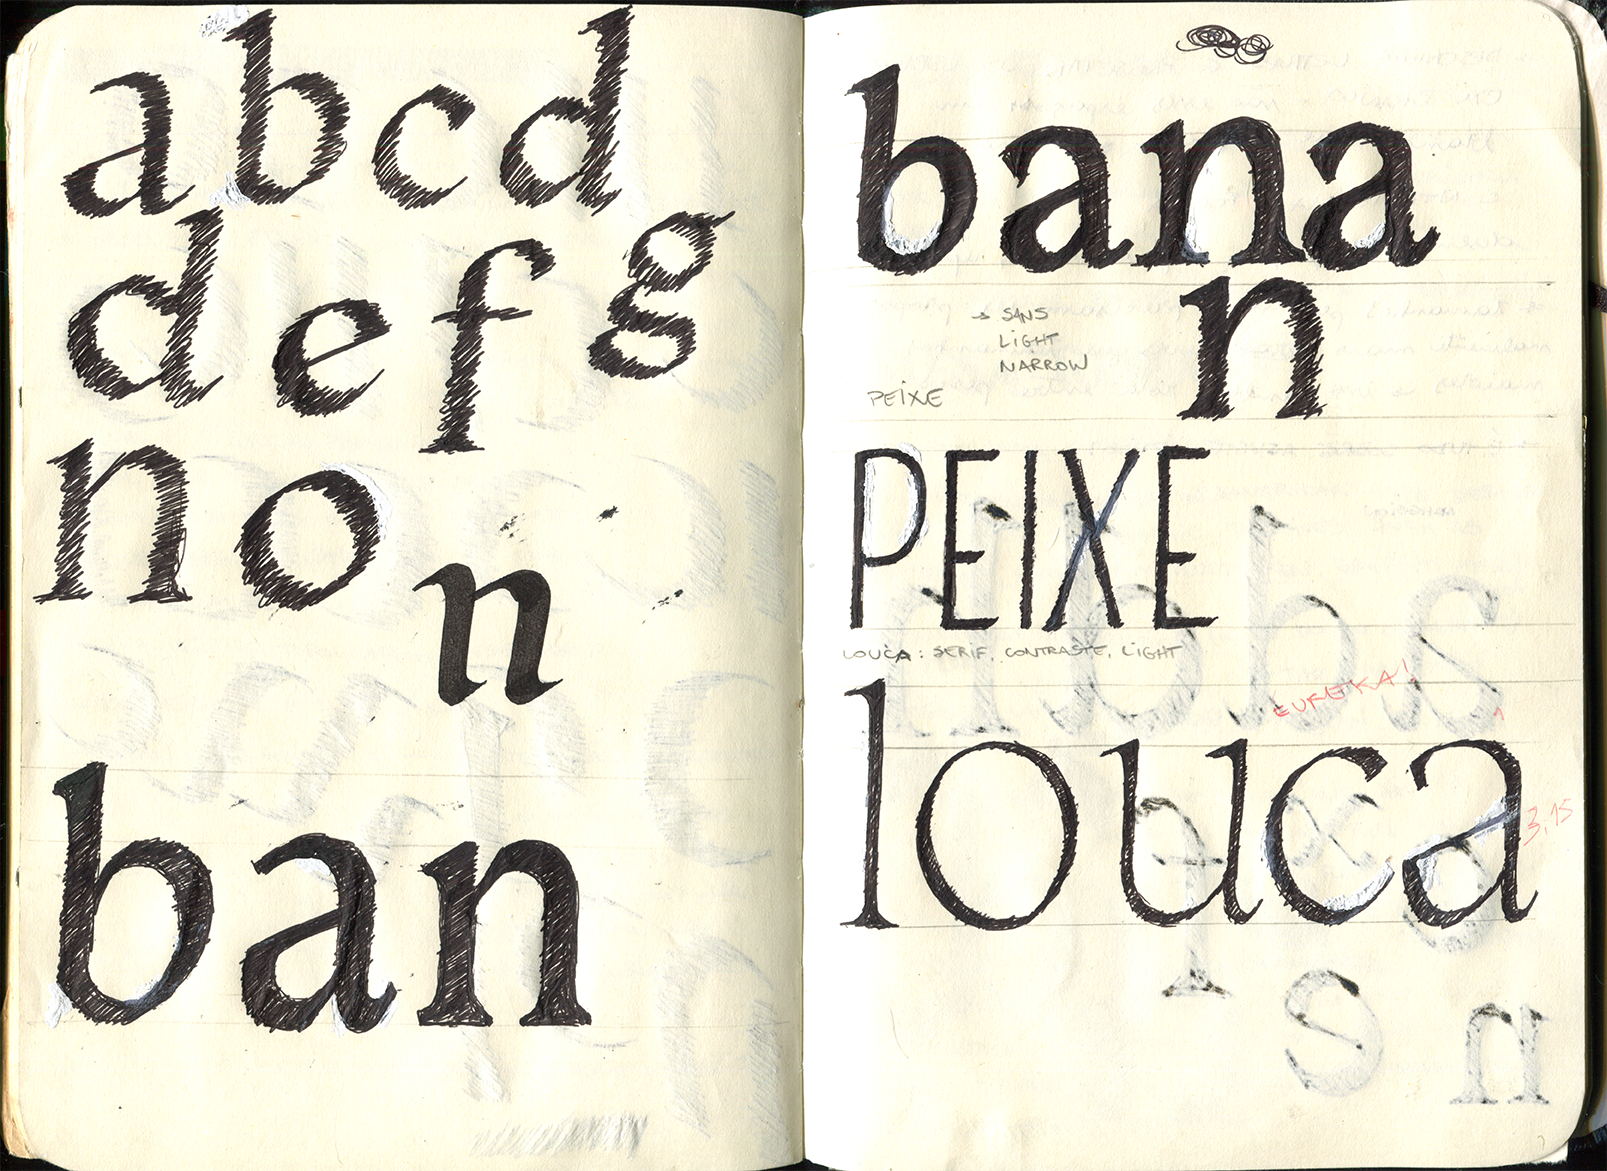 abcd
defg
no
n
ban
bana
n
→ SANS
LIGHT
NARROW
PEIXE
PEIXE
LOUÇA: SERIF, CONTRASTE, LIGHT
EUREKA!
louca
3,15